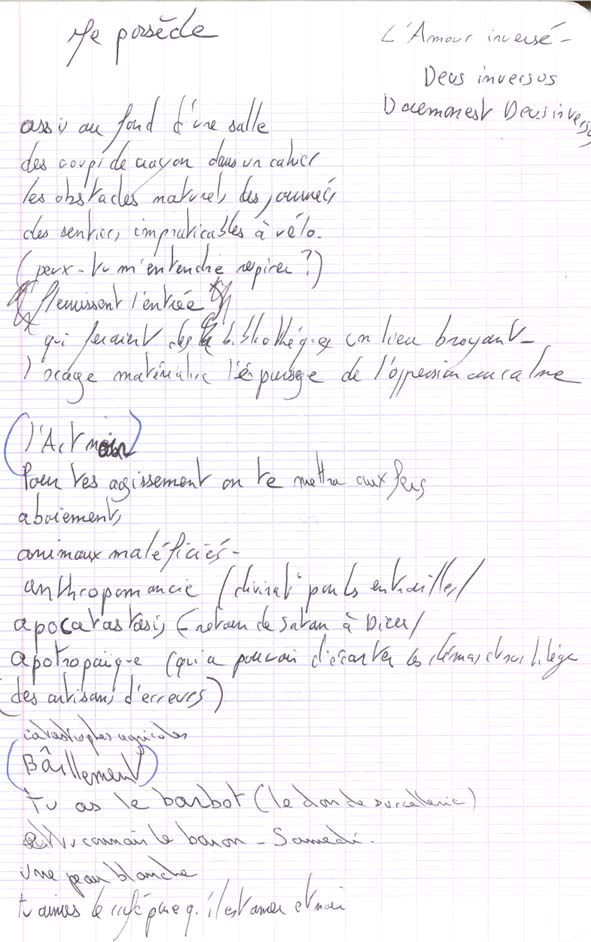 Je possède
L'Amour inversé -
Deus inversus
Daemon est Deus inversus
assis au fond d'une salle
des coups de crayon dans un cahier
les obstacles naturels des journées
des sentiers impraticables à vélo.
(peux-tu m'entendre respirer ?)
fleurissent l'entrée
qui feraient des bibliothèques un lieu broyant -
l'orage matérialise l' de l'oppression au calme
(l'Art noir)
Pour tes agissements on te mettra aux fers
aboiements
animaux maléficiés -
anthropomancie (divinat° par les entrailles)
apocatastasis (retour de Satan à Dieu)
apotropaïque (qui a pouvoir d'écarter les démons et sortilège
(des artisans d'erreurs)
catastrophes agricoles
(Bâillement)
tu as le barbot (le don de sorcellerie)
tu connais le baron - Samedi.
une peau blanche
tu aimes le café parce q. il est amer et noir